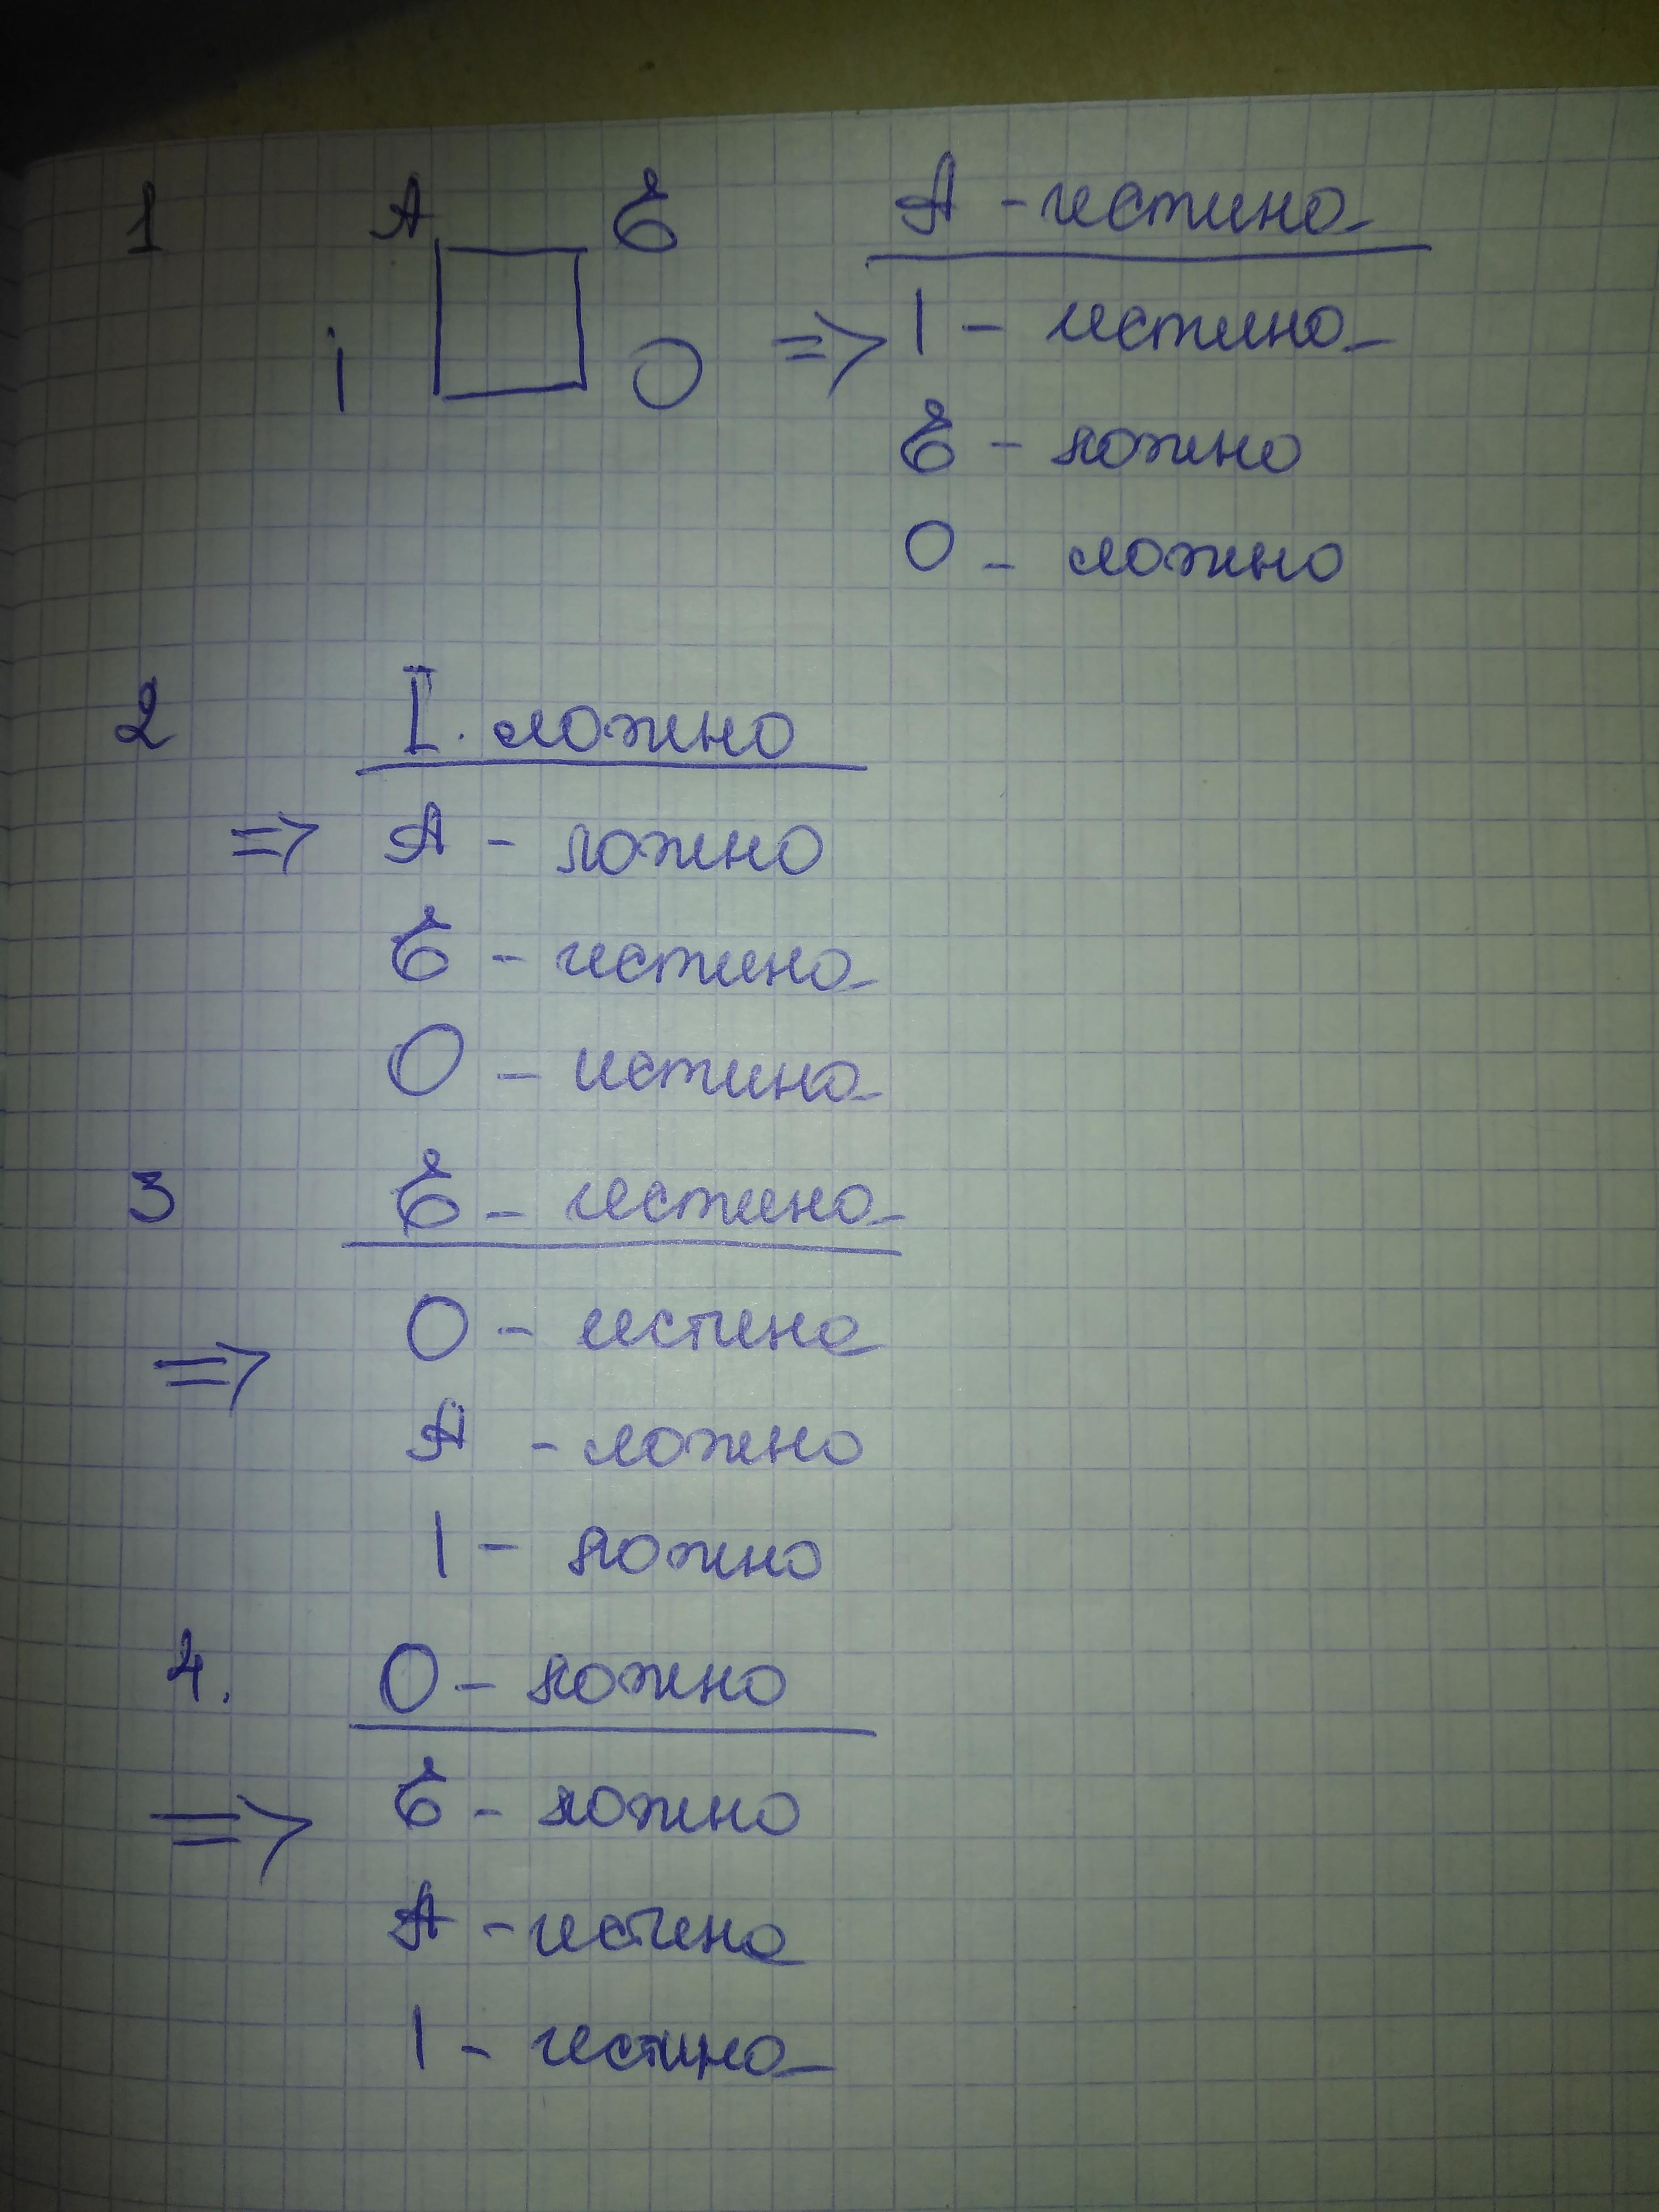 1 A E A - истина
I O => I - истина
E - ложно
O - ложно
2 I. ложно
=> A - ложно
E - истина
O - истина
3 E - истина
O - истина
=>
A - ложно
I - ложно
4. O - ложно
=> E - ложно
A - истина
I - истина